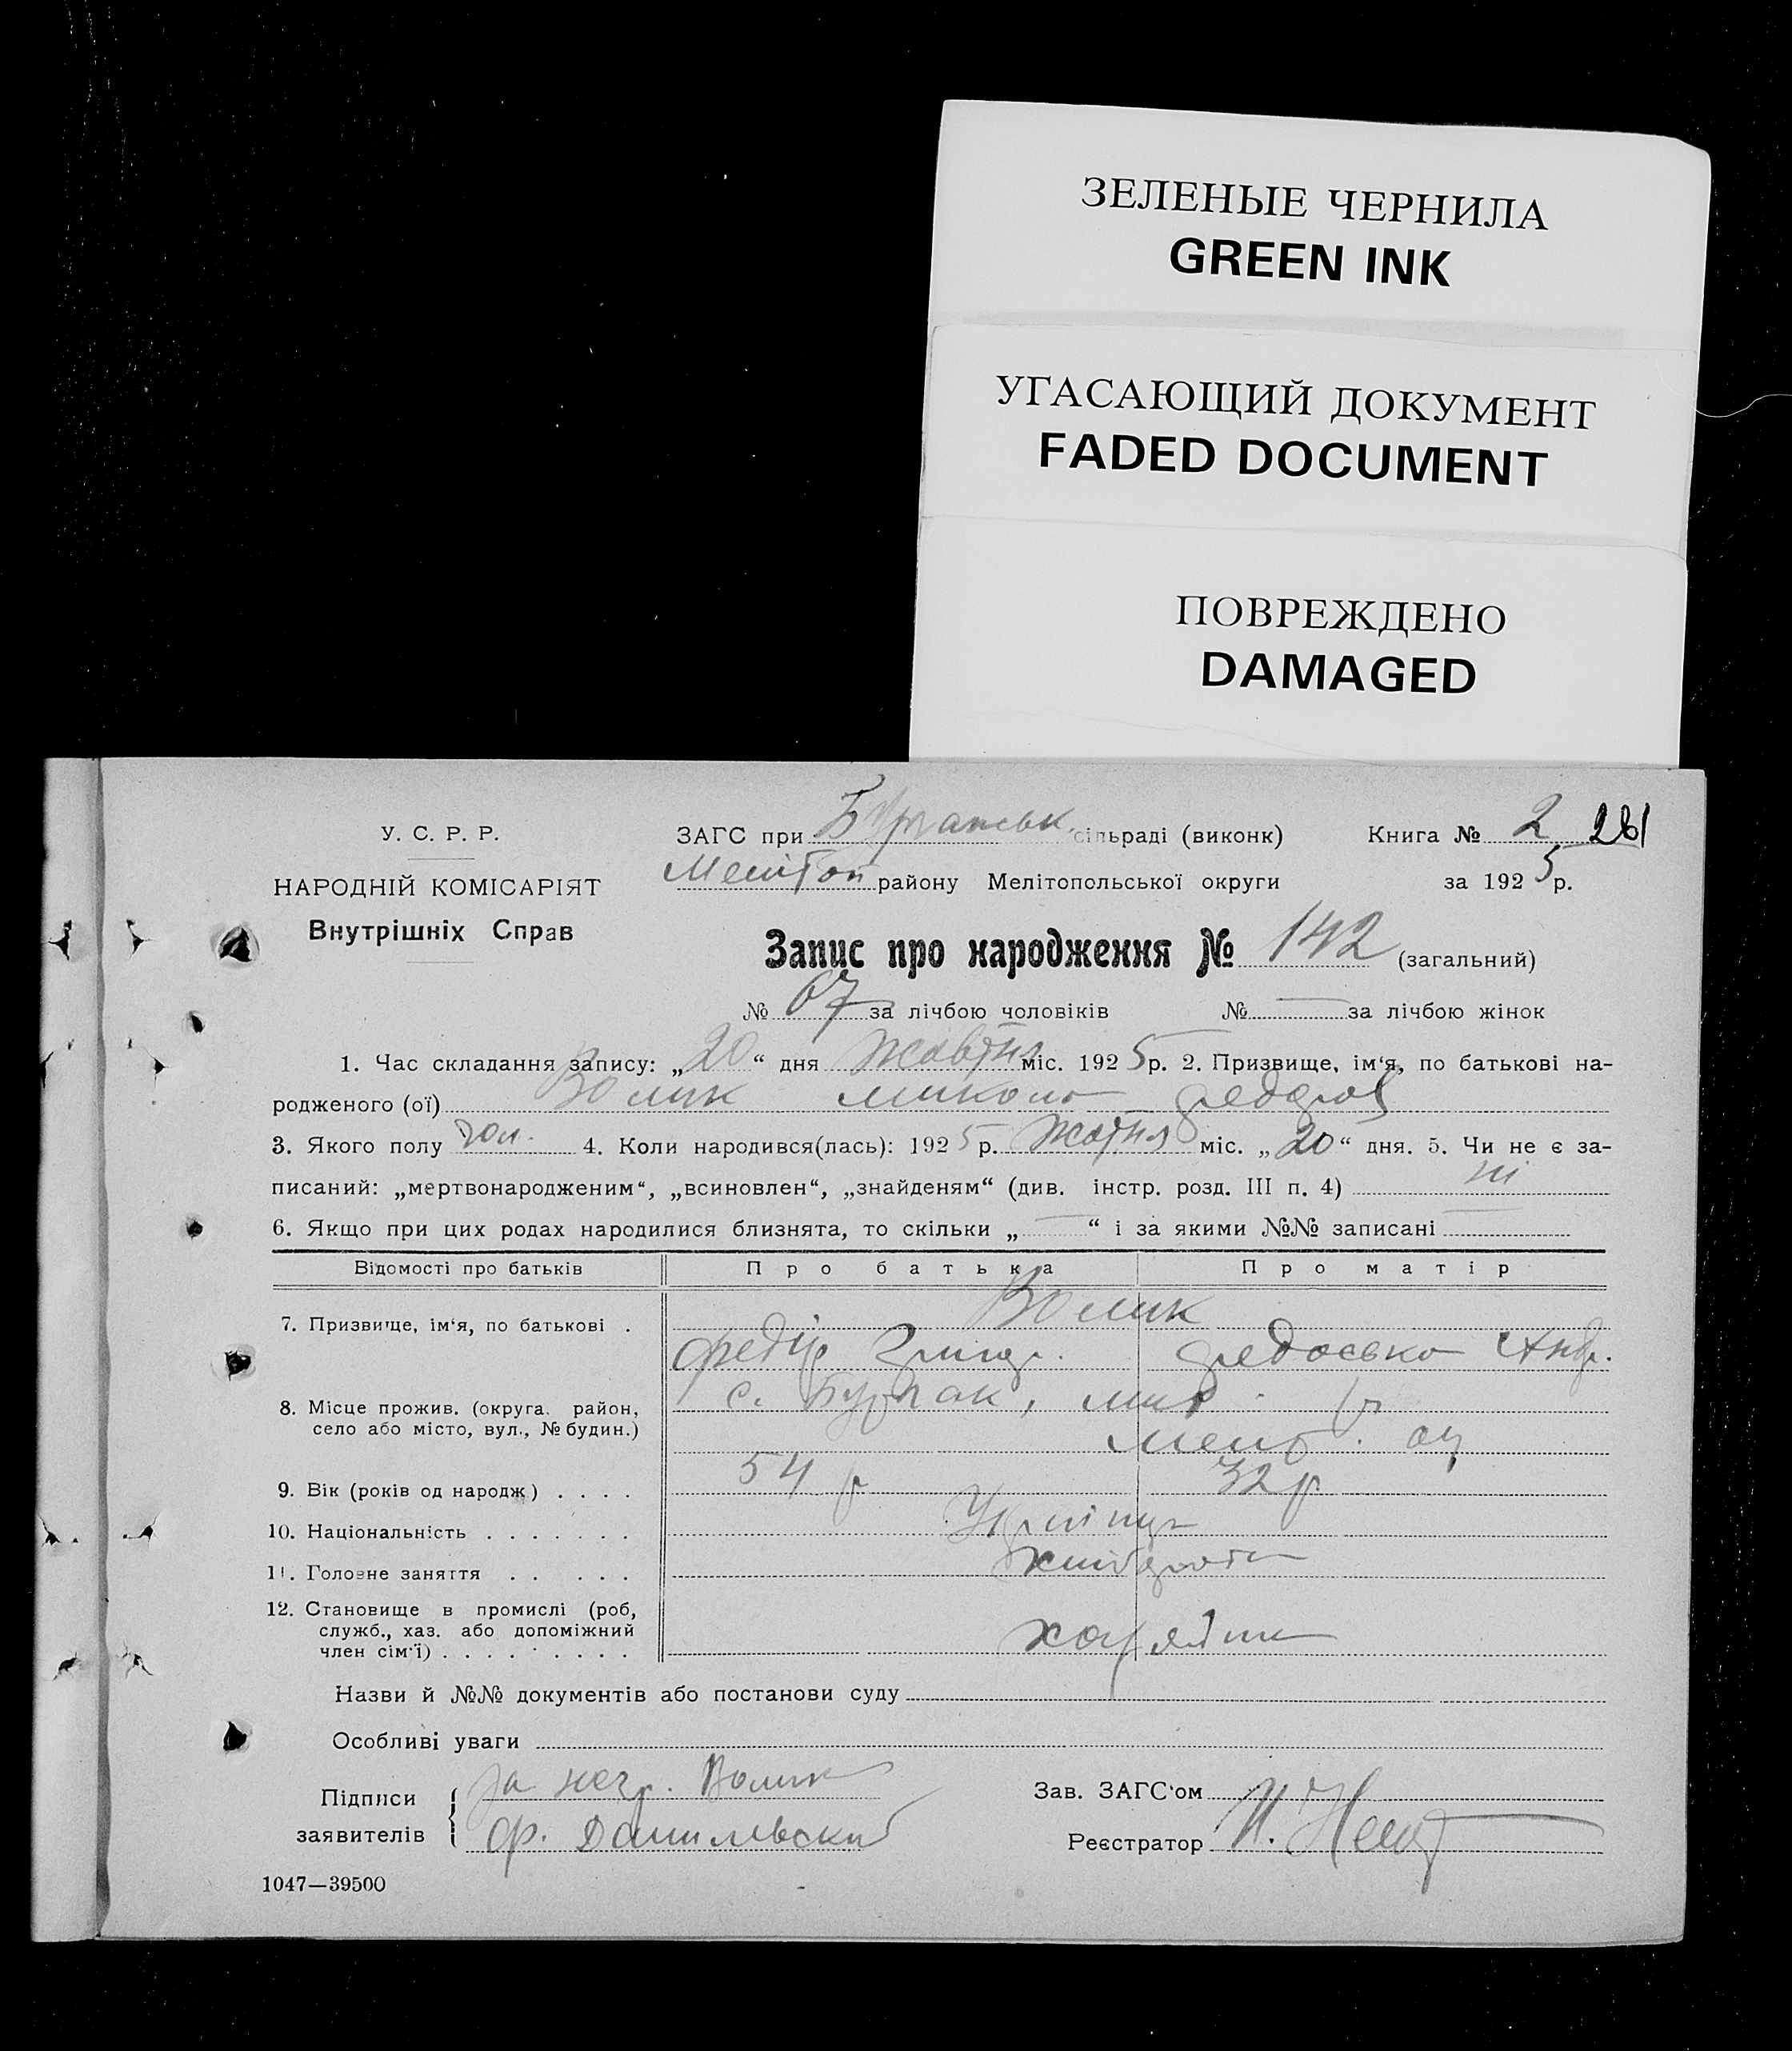 ЗЕЛЕНЫЕ ЧЕРНИЛА
GREEN INK
УГАСАЮЩИЙ ДОКУМЕНТ
FADED DOCUMENT
ПОВРЕЖДЕНО
DAMAGED
У. С. Р. Р.
НАРОДНІЙ КОМІСАРІЯТ
Внутрішніх Справ
ЗАГС при сільраді (виконк) Книга № 2 281
Меліт району Мелітопольської округи за 1925 р.
Запис про народження № 142 (загальний)
№ 67 за лічбою чоловіків № — за лічбою жінок
1. Час складання запису: „20“ дня жовтня міс. 1925 р. 2. Призвище, ім‘я, по батькові на-
родженого (ої) Волик Микола
3. Якого полу чол. 4. Коли народився(лась): 1925 р. жовтня міс. „20“ дня. 5. Чи не є за-
писаний: „мертвонародженим“, „всиновлен“, „знайденям“ (див. інстр. розд. III п. 4) ні
6. Якщо при цих родах народилися близнята, то скільки „—“ і за якими №№ записані —
Відомості про батьків Про батька Про матір
7. Призвище, ім‘я, по батькові . Волик
Федір Григор. Федоська Андр.
8. Місце прожив. (округа, район,
село або місто, вул., № будин.)
9. Вік (років од народж) . . . . 54 р 32 р
10. Національність . . . . . . .
11. Головне заняття . . . . .
12. Становище в промислі (роб,
служб., хаз. або допоміжний
член сім‘ї) . . . . . . . . .
Назви й №№ документів або постанови суду
Особливі уваги
Підписи
заявителів
за негр. Волик
Ф. Данилевский
Зав. ЗАГС‘ом
Реєстратор
1047—39500